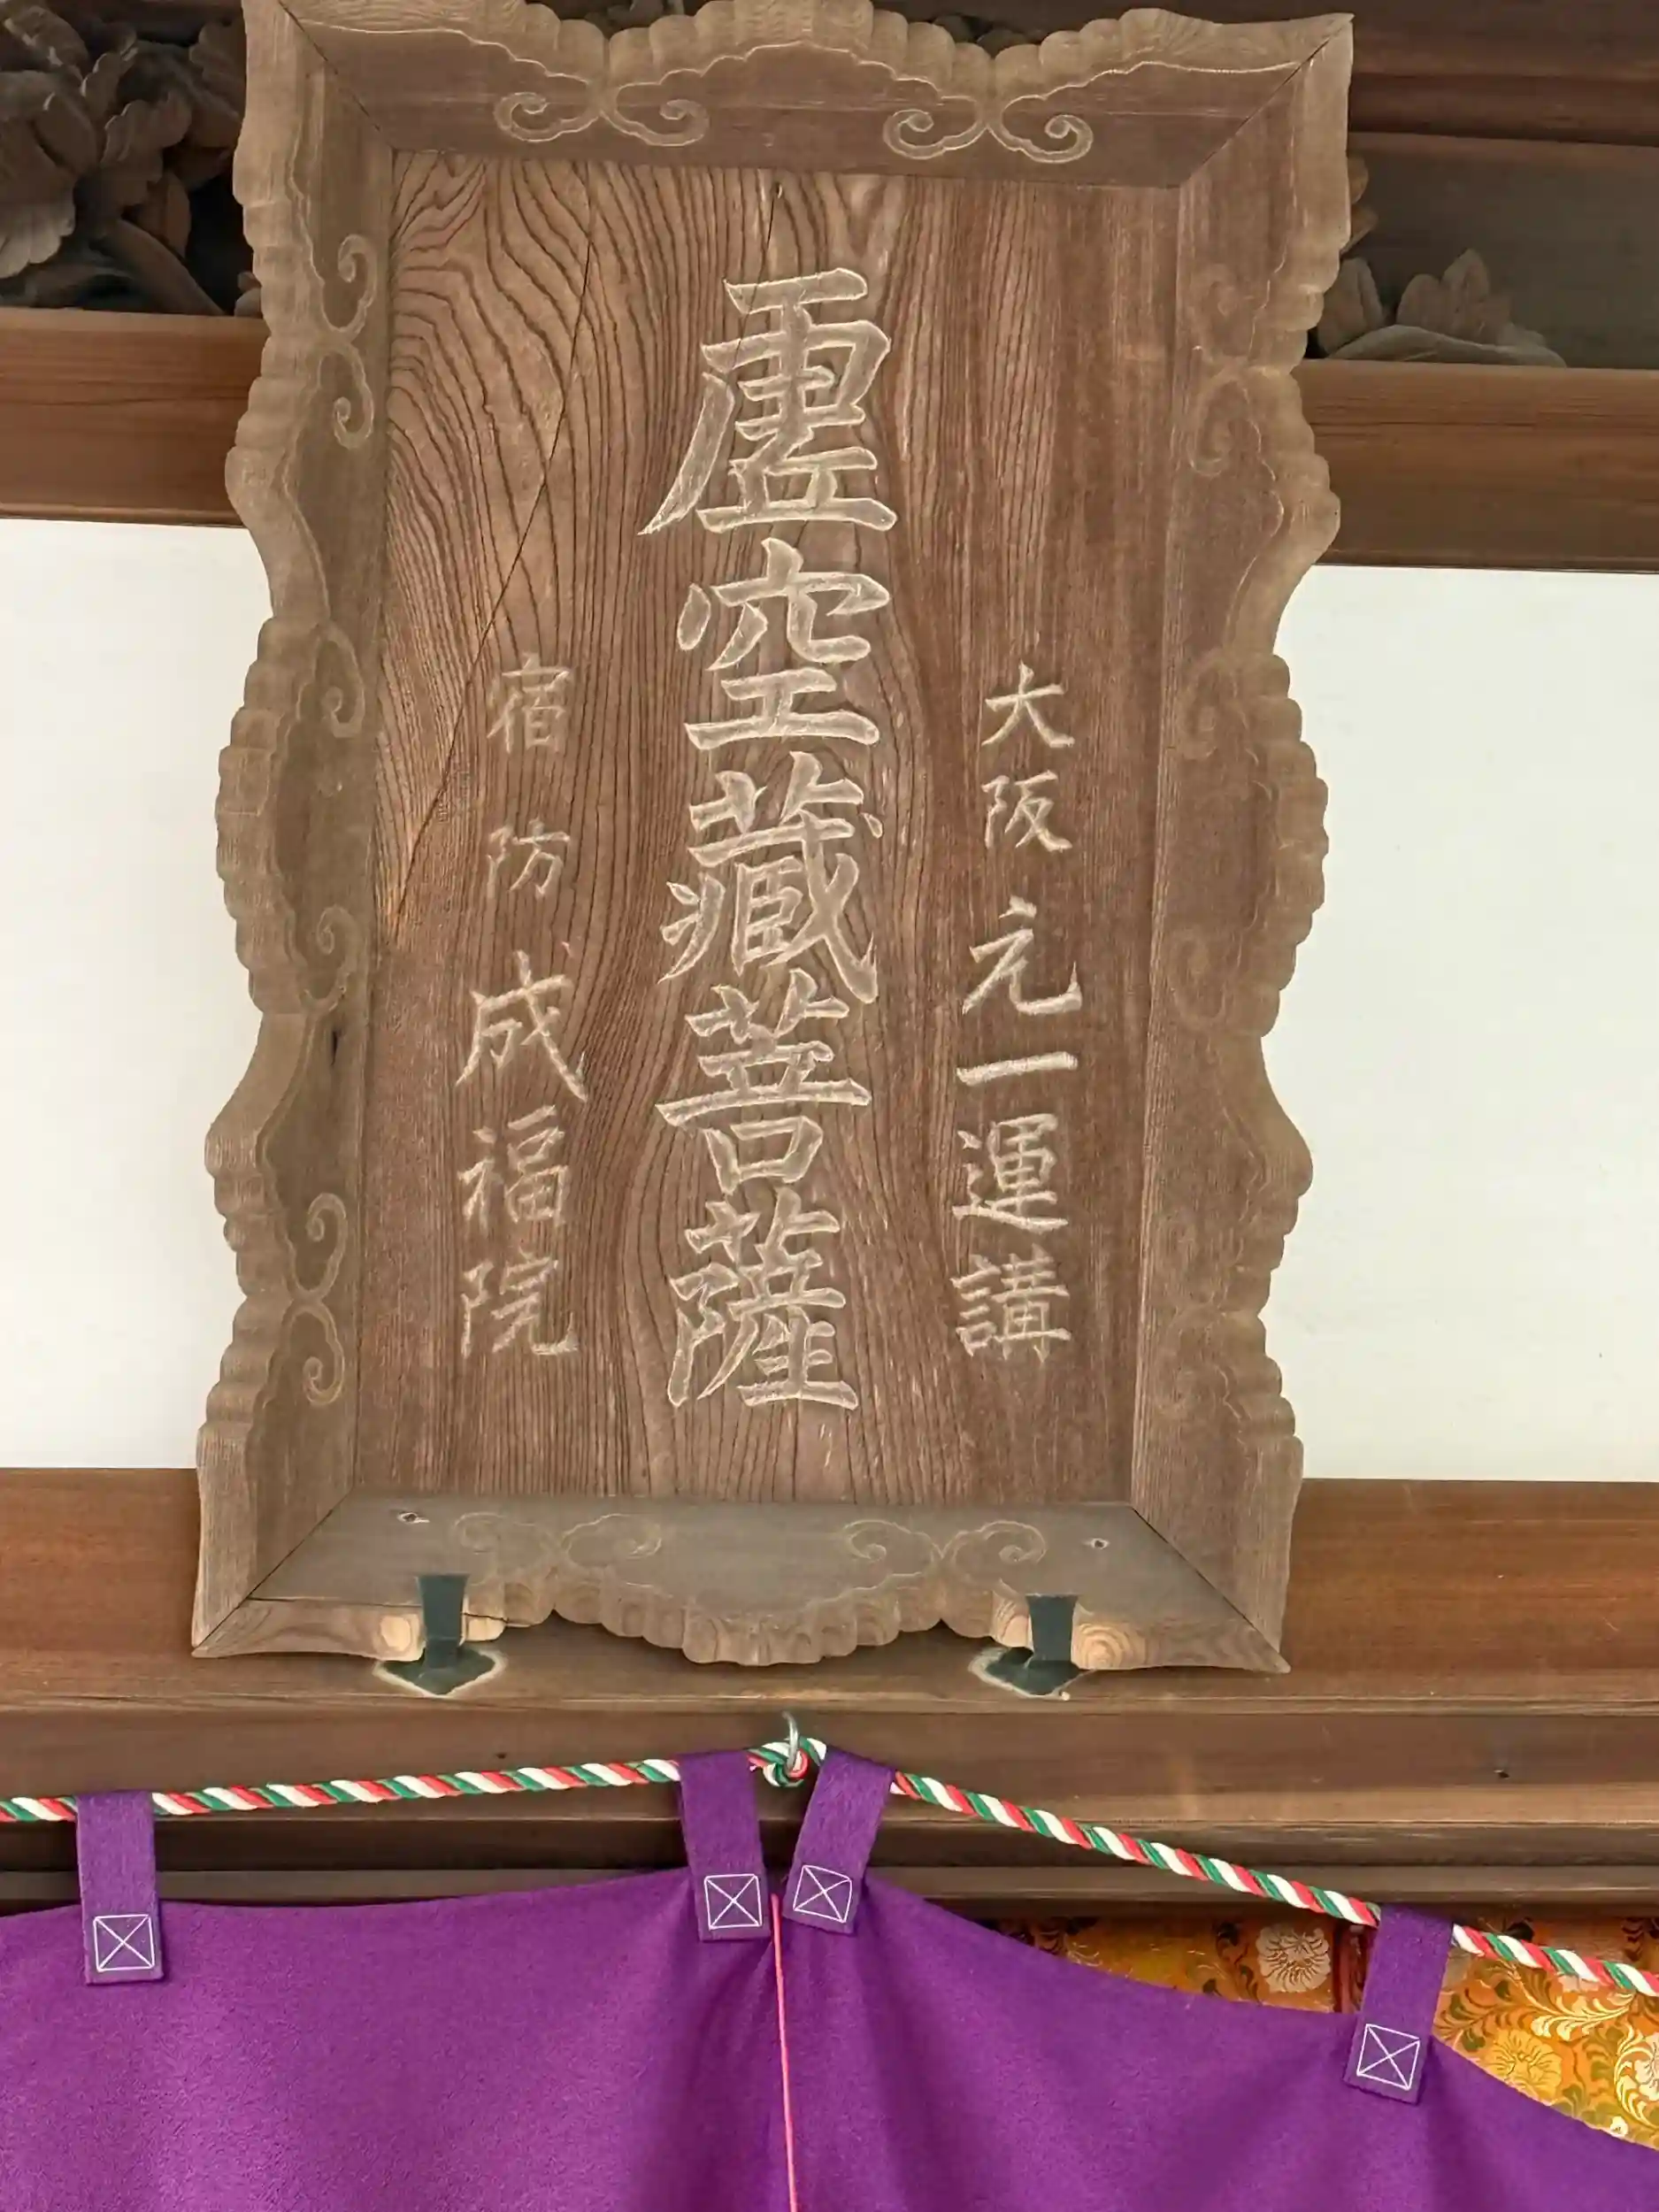 大阪元一運講
虚空藏菩薩
宿防成福院